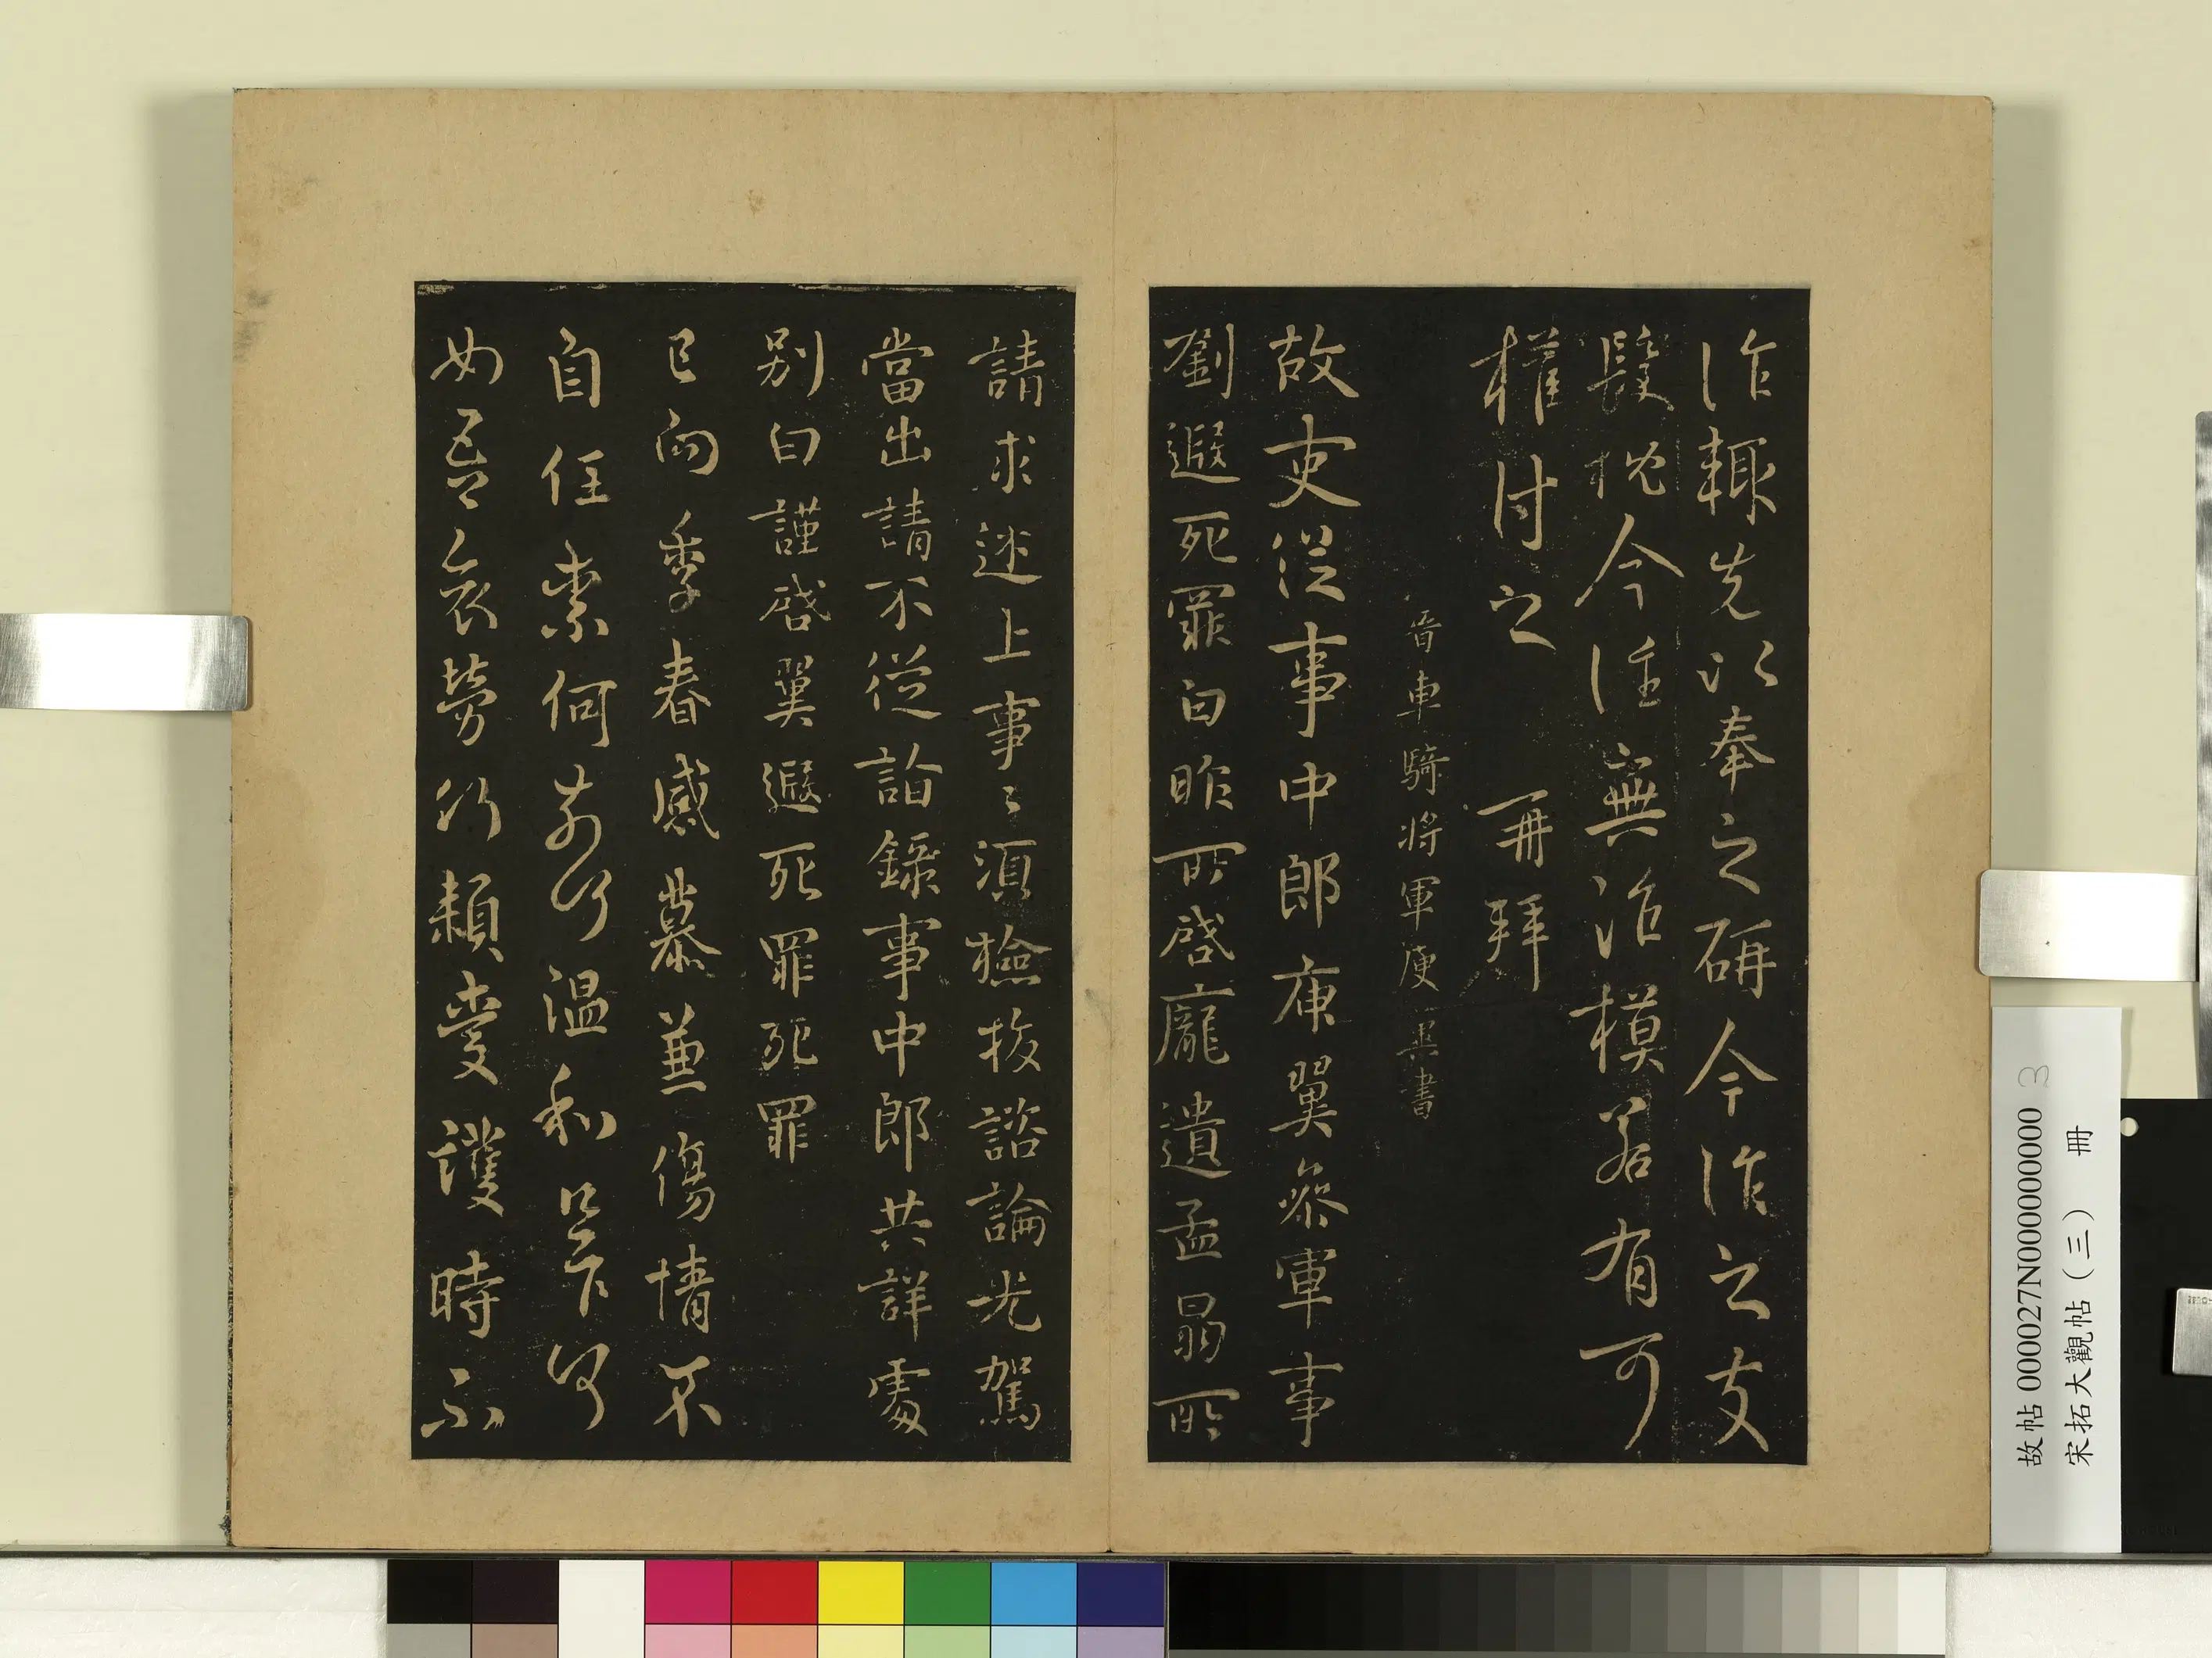 作輙先以奉之研今作之支
今往無作模若有可
權付之　再拜
晉車騎將軍庾翼書
故吏從事中郎庾翼參軍事
劉遐死罪白昨所啓龐遺孟晷所
請求述上事〻須檢校諮論光駕
當出請不從詣錄事中郎共詳處
別白謹啓翼遐死罪死罪
已向季春感慕兼傷情不
自任柰何溫和足下何
如吾哀勞頼愛護時不
故帖 000027N000000000 3
宋拓大觀帖（三） 冊